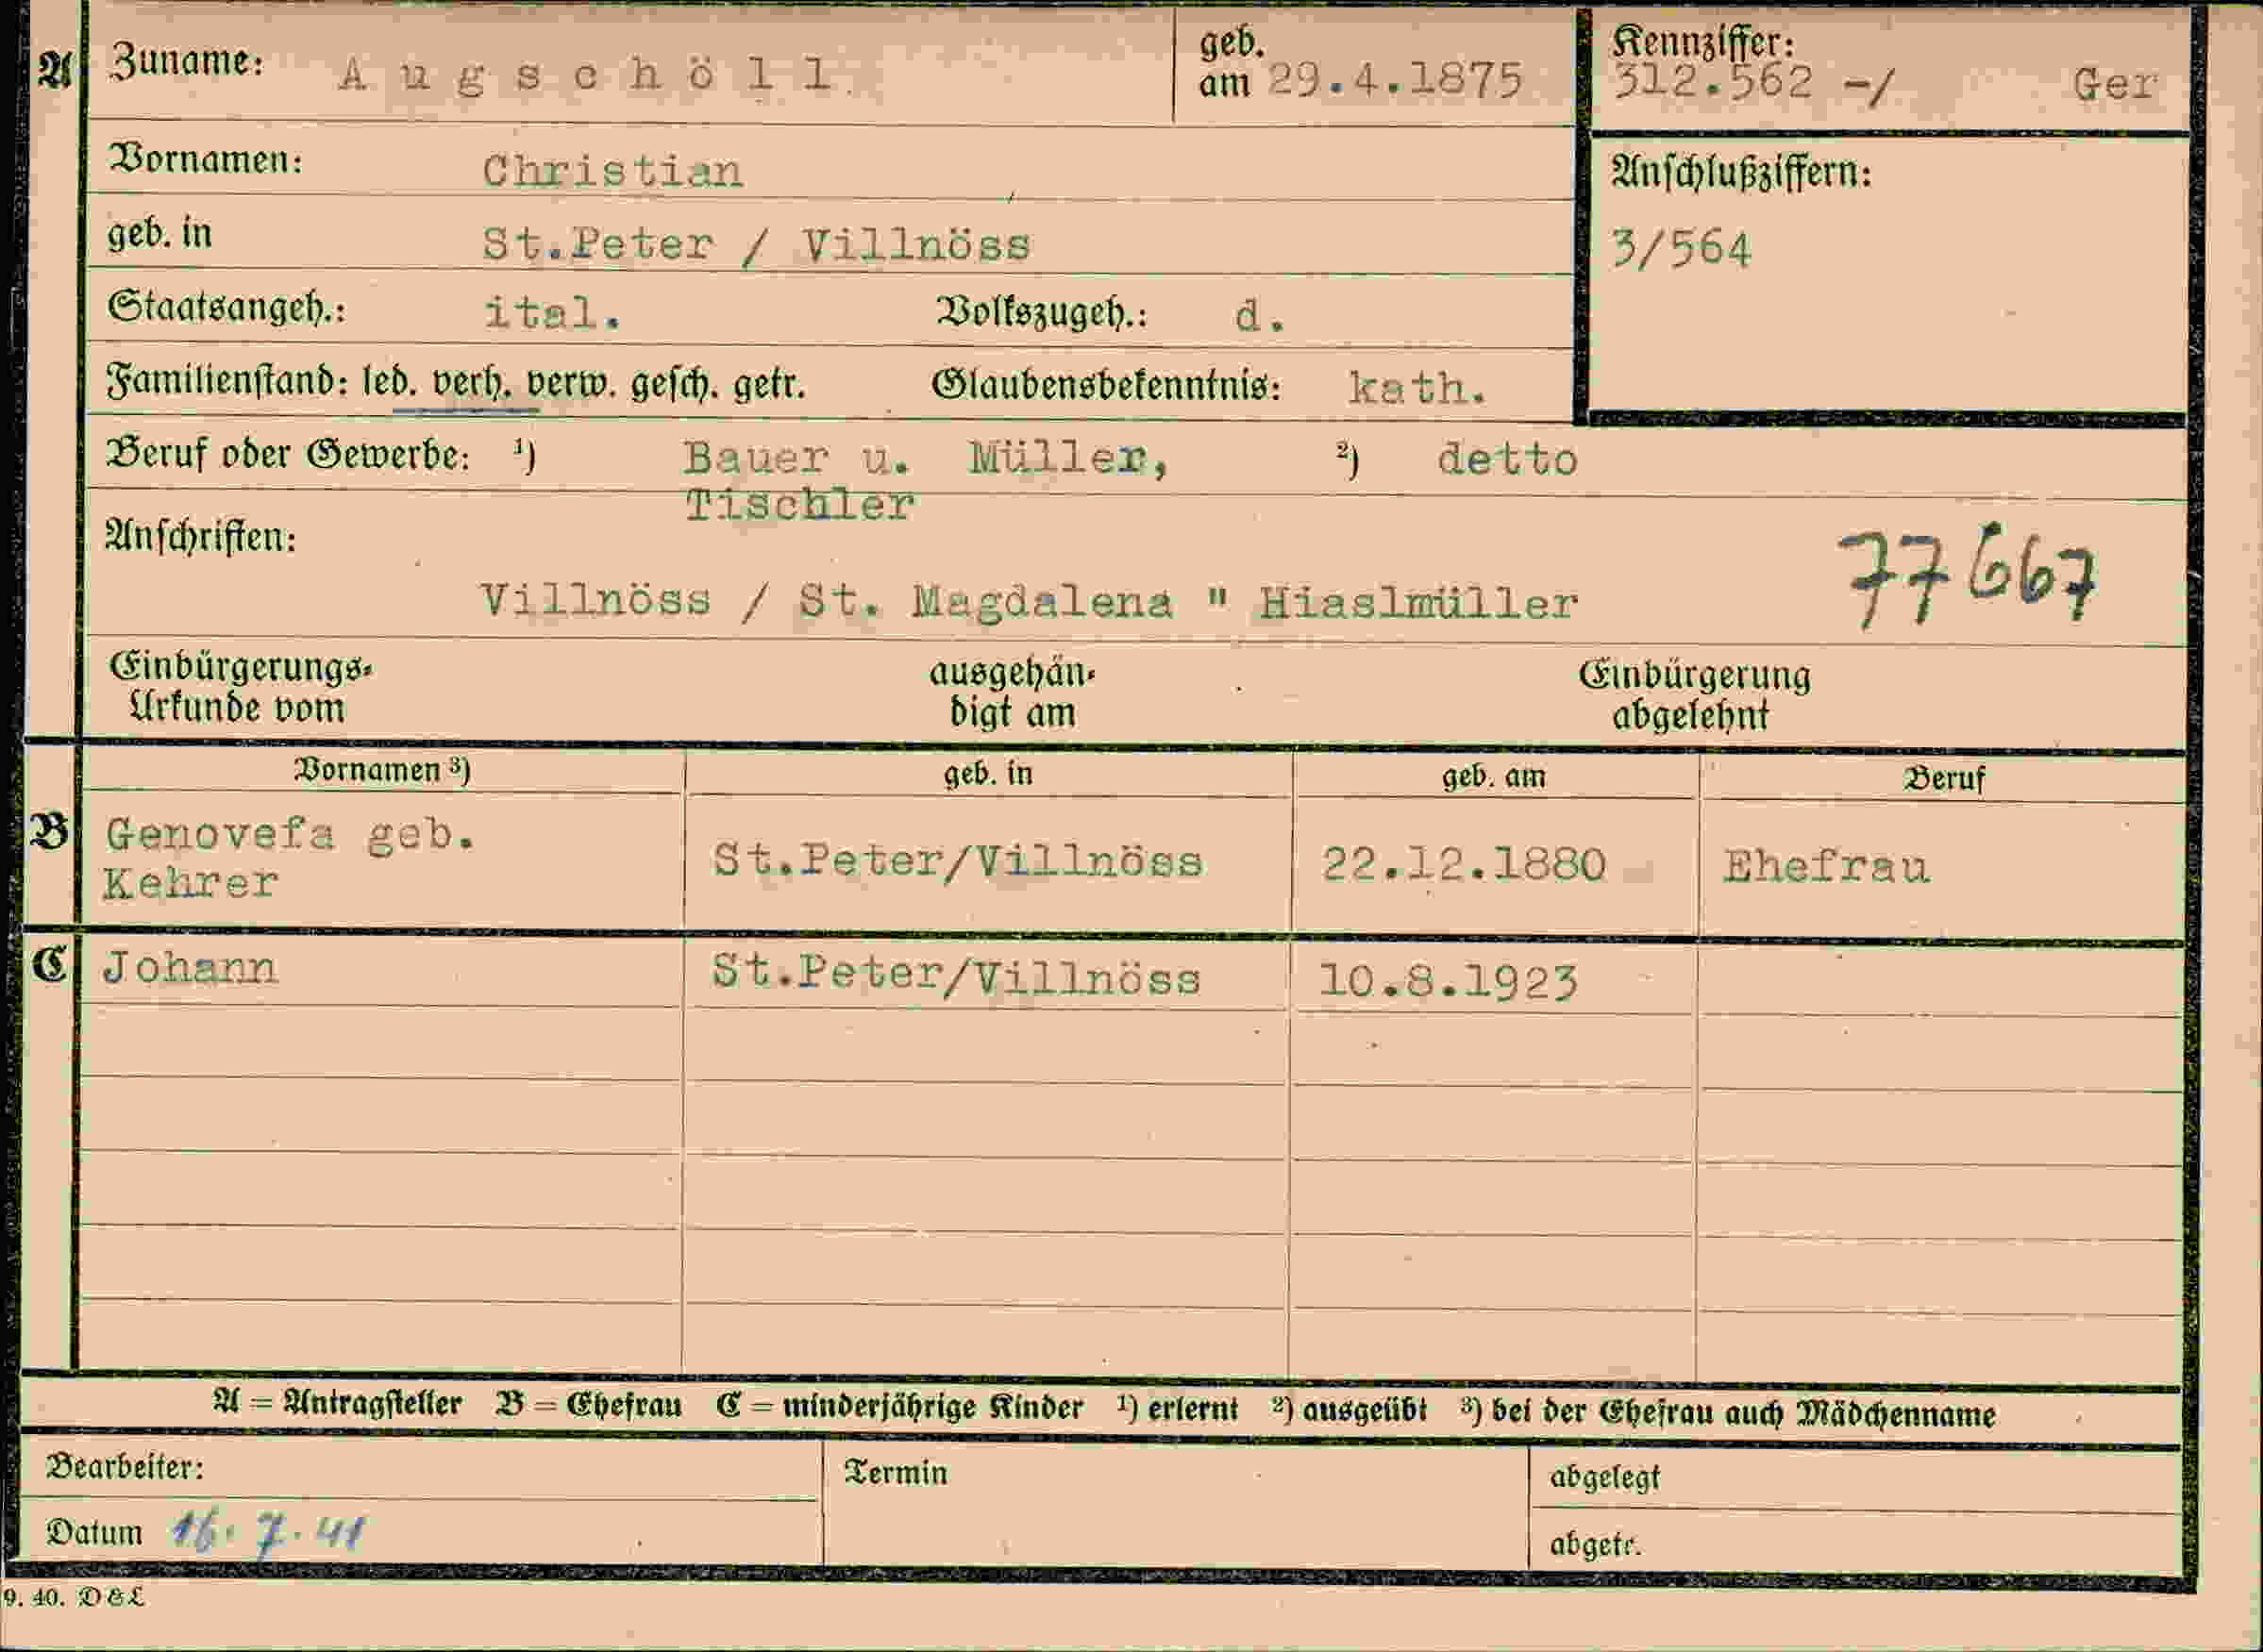 A Zuname: Augschöll geb. am 29.4.1875 Kennziffer: 312.562 -/ Ger
Vornamen: Christian Anschlußziffern:
geb. in St.Peter / Villnöss 3/564
Staatsangeh.: ital. Volkszugeh.: d.
Familienstand: led. verh. verw. gesch. getr. Glaubensbekenntnis: kath.
Beruf oder Gewerbe: ¹) Bauer u. Müller, ²) detto
Tischler
Anschriften:
Villnöss / St. Magdalena " Hiaslmüller 77667
Einbürgerungs- ausgehän- Einbürgerung
Urkunde vom digt am abgelehnt
Vornamen ³) geb. in geb. am Beruf
B Genovefa geb.
Kehrer St.Peter/Villnöss 22.12.1880 Ehefrau
C Johann St.Peter/Villnöss 10.8.1923
A = Antragsteller B = Ehefrau C = minderjährige Kinder ¹) erlernt ²) ausgeübt ³) bei der Ehefrau auch Mädchenname
Bearbeiter: Termin abgelegt
Datum 16.7.41 abgetr.
9. 40. D & L